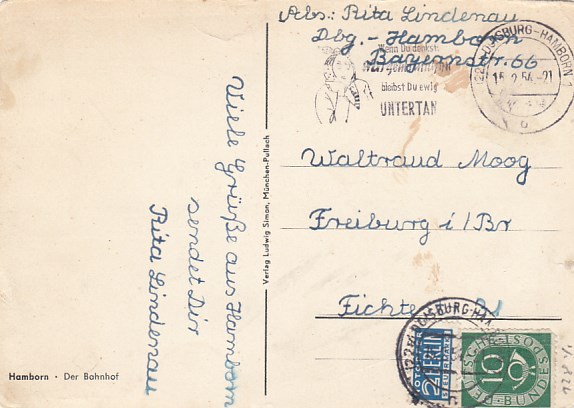 Abs.: Rita Lindenau
Dbg.-Hamborn
Bayernstr. 66
Wenn Du denkst:
bleibst Du ewig
UNTERTAN
(22a) DUISBURG-HAMBORN 1
15.2.54.-21
Waltraud Moog
Freiburg i/Br
Viele Grüße aus Hamborn
sendet Dir
Rita Lindenau
Verlag Ludwig Simon, München-Pullach
Hamborn · Der Bahnhof
(22a) DUISBURG-HA
NOTOPFER
2 BERLIN
STEUERMARKE
DEUTSCHE BUNDESPOST
10